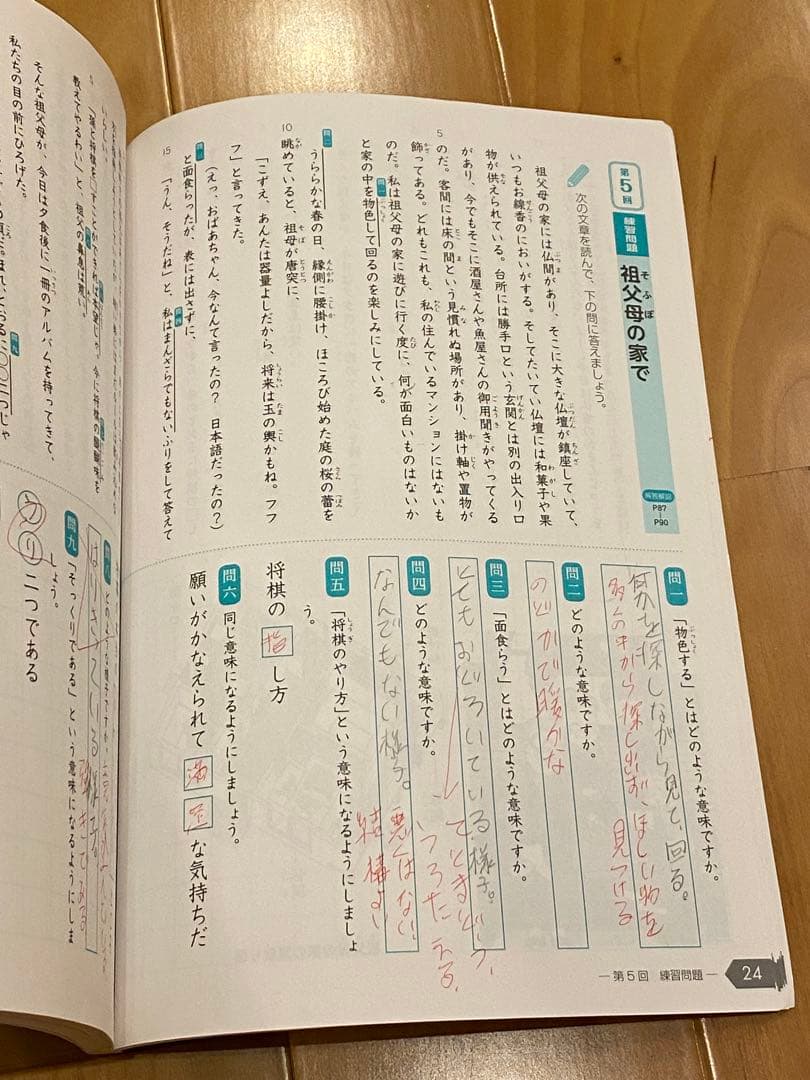 第5回
練習問題
祖父母の家で
解答解説
P87
P90
次の文章を読んで、下の問に答えましょう。
祖父母の家には仏間があり、そこに大きな仏壇が鎮座していて、
いつもお線香のにおいがする。そしてたいてい仏壇には和菓子や果
物が供えられている。台所には勝手口という玄関とは別の出入り口
があり、今でもそこに酒屋さんや魚屋さんの御用聞きがやってくる
のだ。客間には床の間という見慣れぬ場所があり、掛け軸や置物が
飾ってある。どれもこれも、私の住んでいるマンションにはないも
のだ。私は祖父母の家に遊びに行く度に、何か面白いものはないか
と家の中を物色して回るのを楽しみにしている。
うららかな春の日、縁側に腰掛け、ほころび始めた庭の桜の蕾を
眺めていると、祖母が唐突に、
「こずえ、あんたは器量よしだから、将来は玉の輿かもね。フフ
フ」と言ってきた。
(えっ、おばあちゃん、今なんて言ったの? 日本語だったの?)
と面食らったが、表には出さずに、
「うん、そうだね」と、私はまんざらでもないふりをして答えて
問一 「物色する」とはどのような意味ですか。
何かを探しながら見て、回る。
多くの中から探し出す、ほしい物を
見つける
問二 どのような意味ですか。
のどかで暖かな
問三 「面食らう」とはどのような意味ですか。
とてもおどろいている様子。
てとまどう、
うろたえる、
問四 どのような意味ですか。
なんでもない様子。
悪くはない、
結構よい
問五 「将棋のやり方」という意味になるようにしましょ
う。
将棋の 指 し方
問六 同じ意味になるようにしましょう。
願いがかなえられて 満 足 な気持ちだ
第5回 練習問題
24
教えてやるわい」と、祖父の鼻息は荒い。
そんな祖父母が、今日は夕食後に一冊のアルバムを持ってきて、
私たちの目の前にひろげた。
はりきっている様子。
問九 「そっくりである」という意味になるようにしま
しょう。
うり 二つである